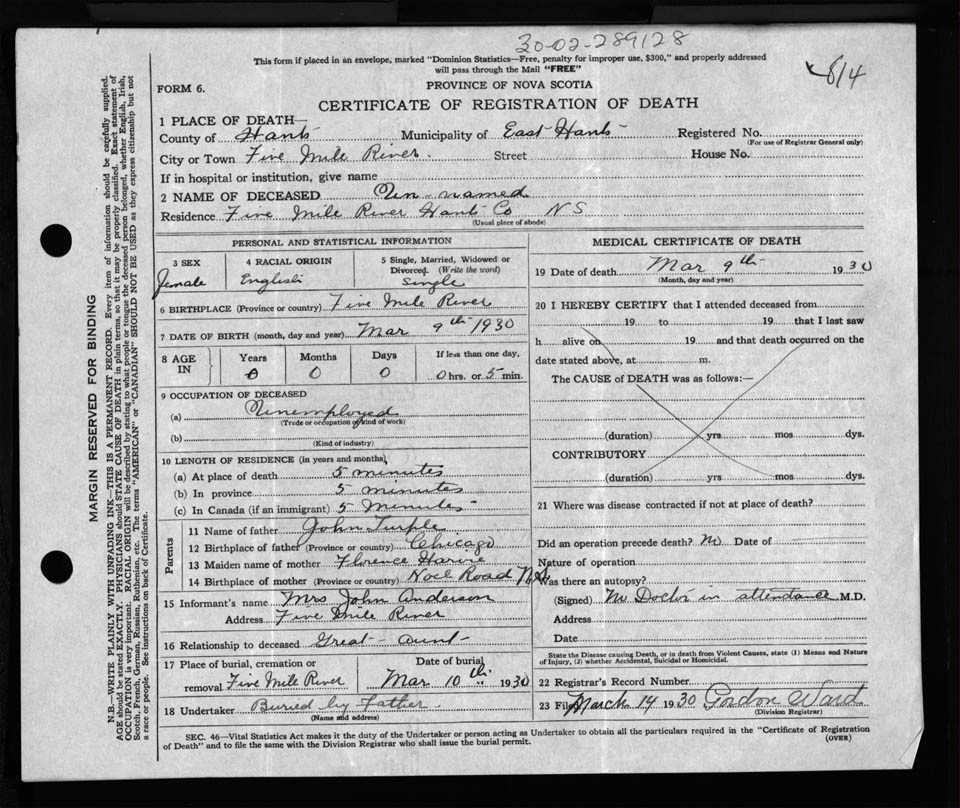 30-02-289128
This form if placed in an envelope, marked "Dominion Statistics—Free, penalty for improper use, $300," and properly addressed
will pass through the Mail "FREE"
814
FORM 6.
PROVINCE OF NOVA SCOTIA
CERTIFICATE OF REGISTRATION OF DEATH
1 PLACE OF DEATH—
County of Hants Municipality of East Hants Registered No.
(For use of Registrar General only)
City or Town Five Mile River Street House No.
If in hospital or institution, give name
2 NAME OF DECEASED Un-named
Residence Five Mile River Hants Co NS
(Usual place of abode)
PERSONAL AND STATISTICAL INFORMATION
3 SEX 4 RACIAL ORIGIN 5 Single, Married, Widowed or
Divorced. (Write the word)
Female English Single
6 BIRTHPLACE (Province or country) Five Mile River
7 DATE OF BIRTH (month, day and year) Mar 9th 1930
8 AGE IN Years Months Days If less than one day,
0 0 0 0 hrs. or 5 min.
9 OCCUPATION OF DECEASED
(a) Unemployed
(Trade or occupation of kind of work)
(b)
(Kind of industry)
10 LENGTH OF RESIDENCE (in years and months)
(a) At place of death 5 minutes
(b) In province 5 minutes
(c) In Canada (if an immigrant) 5 Minutes
Parents
11 Name of father John Turple
12 Birthplace of father (Province or country) Chicago
13 Maiden name of mother Florence
14 Birthplace of mother (Province or country) Noel Road N.S.
15 Informant's name Mrs John Anderson
Address Five Mile River
16 Relationship to deceased Great-aunt
17 Place of burial, cremation or Date of burial
removal Five Mile River Mar 10th 1930
18 Undertaker Buried by Father
(Name and address)
MEDICAL CERTIFICATE OF DEATH
19 Date of death Mar 9th 1930
(Month, day and year)
20 I HEREBY CERTIFY that I attended deceased from
19 to 19 that I last saw
h alive on 19 and that death occurred on the
date stated above, at m.
The CAUSE of DEATH was as follows:—
(duration) yrs mos dys.
CONTRIBUTORY
(duration) yrs mos dys.
21 Where was disease contracted if not at place of death?
Did an operation precede death? No Date of
Nature of operation
Was there an autopsy?
(Signed) No Doctor in attendance M.D.
Address
Date
State the Disease causing Death, or in death from Violent Causes, state (1) Means and Nature
of Injury, (2) whether Accidental, Suicidal or Homicidal.
22 Registrar's Record Number
23 Filed March 14 1930 Gordon Ward
(Division Registrar)
SEC. 46—Vital Statistics Act makes it the duty of the Undertaker or person acting as Undertaker to obtain all the particulars required in the "Certificate of Registration
of Death" and to file the same with the Division Registrar who shall issue the burial permit.
(OVER)
MARGIN RESERVED FOR BINDING
N.B.—WRITE PLAINLY WITH UNFADING INK—THIS IS A PERMANENT RECORD. Every item of information should be carefully supplied.
AGE should be stated EXACTLY. PHYSICIANS should STATE CAUSE OF DEATH in plain terms, so that it may be properly classified. Exact statement of
OCCUPATION is very important. RACIAL ORIGIN will be described by stating to what people or tongue the deceased person belonged, whether English, Irish,
Scotch, French, German, Russian, Ruthenian, etc. The terms "AMERICAN" or "CANADIAN" SHOULD NOT BE USED as they express citizenship but not
a race or people. See instructions on back of Certificate.